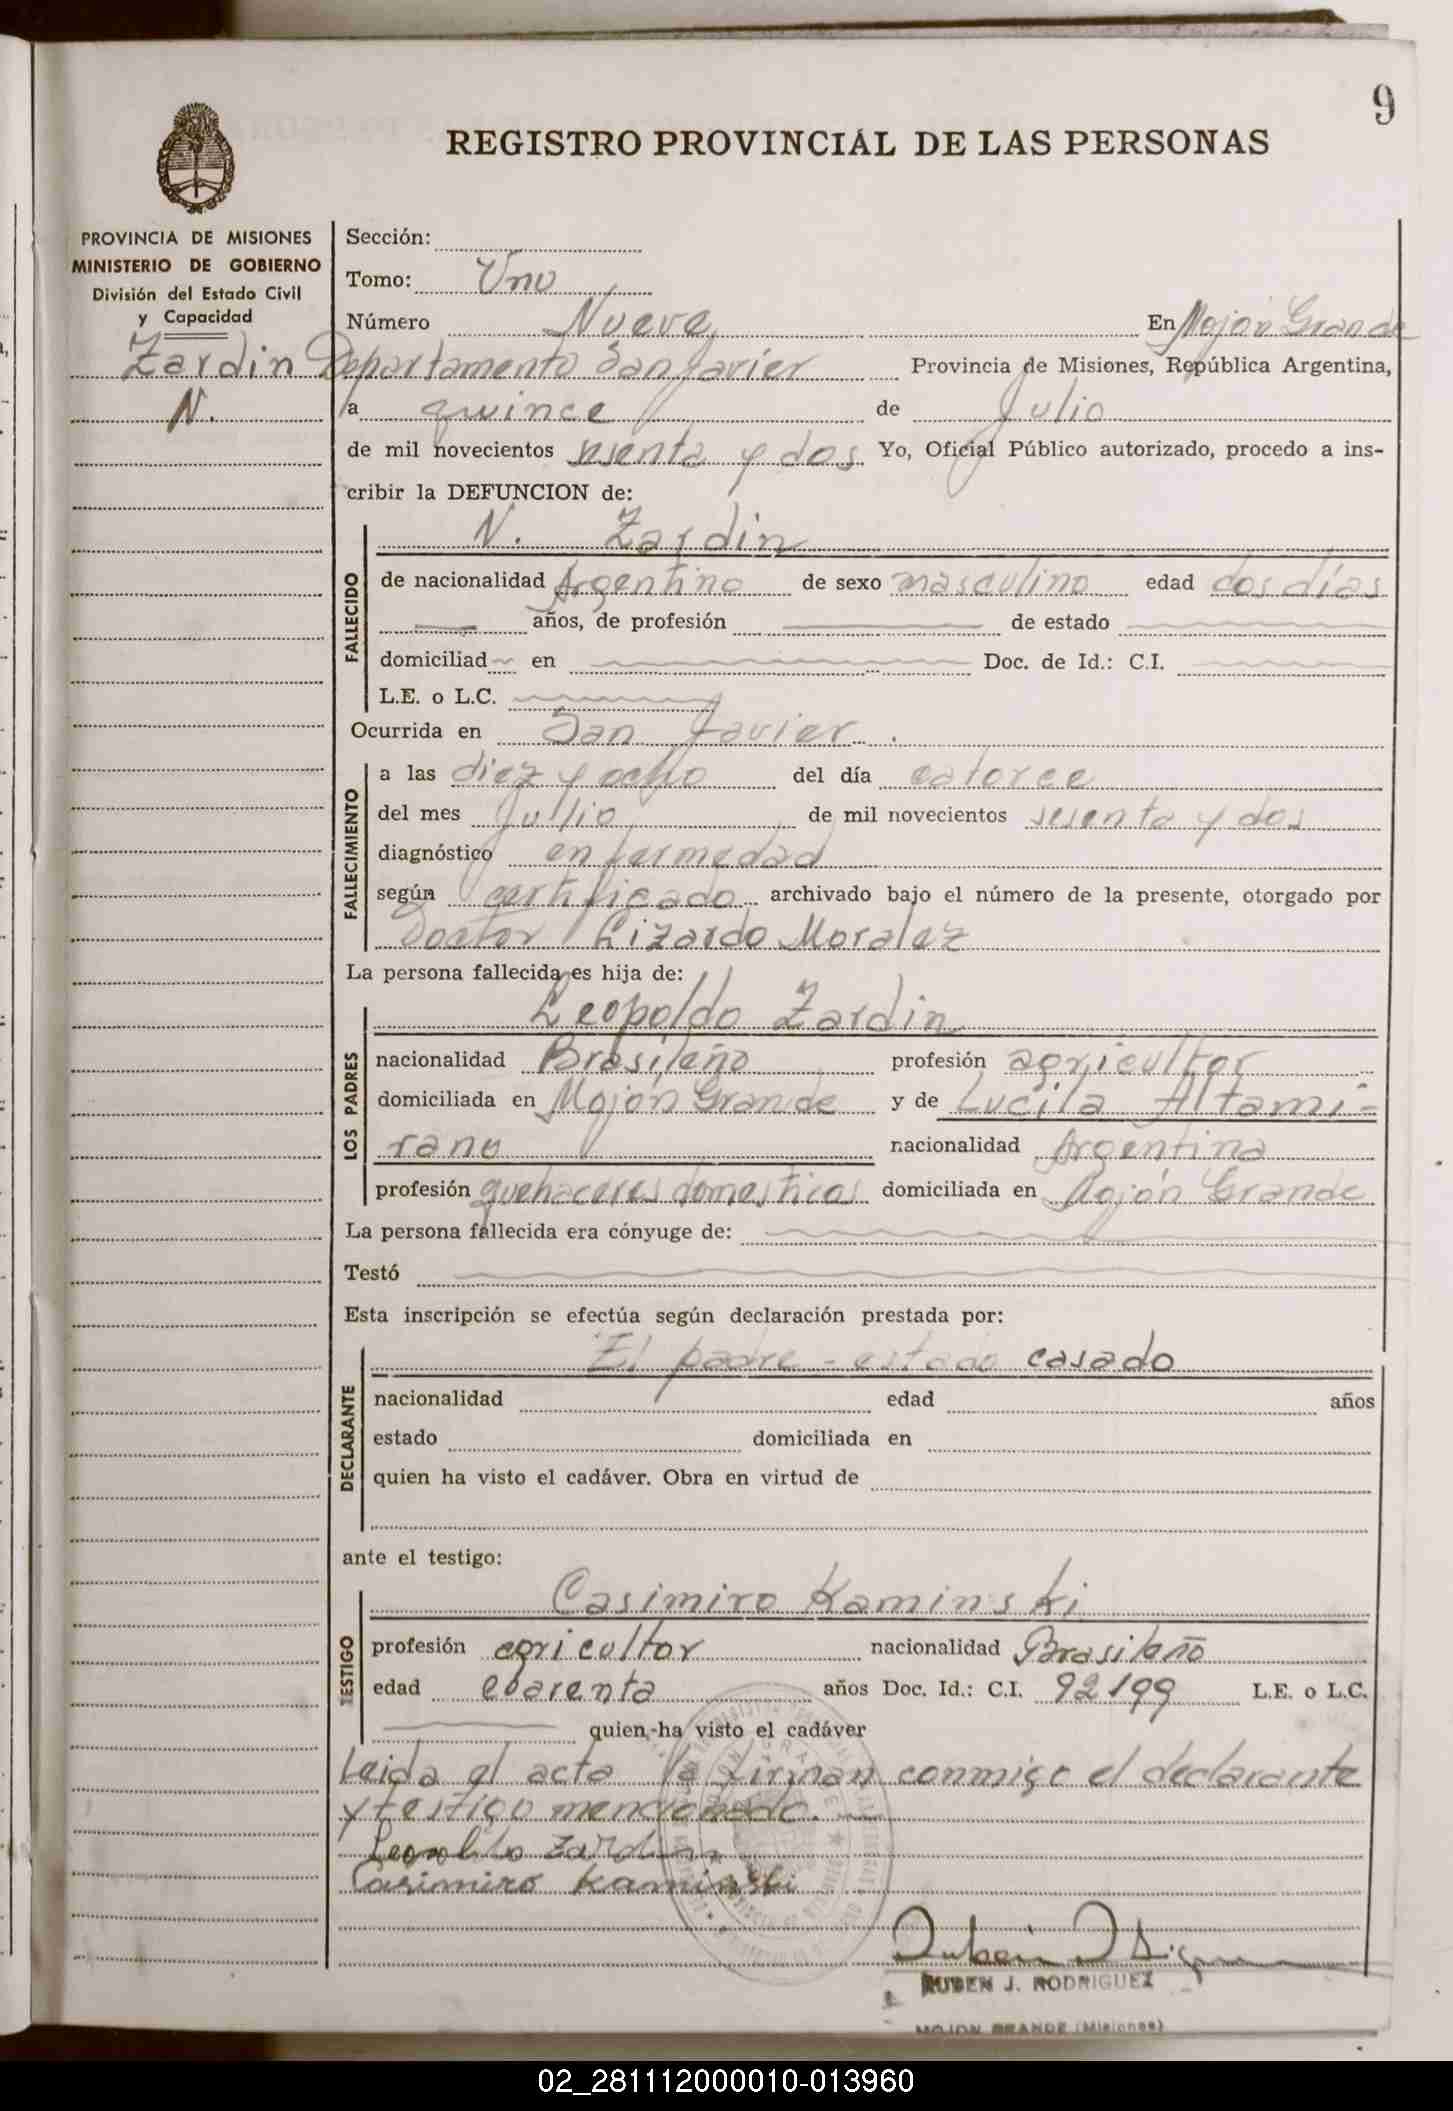 9
REGISTRO PROVINCIAL DE LAS PERSONAS
PROVINCIA DE MISIONES
MINISTERIO DE GOBIERNO
División del Estado Civil
y Capacidad
Zardin
N.
Sección:
Tomo: Uno
Número Nueve En Mojón Grande
Departamento San Javier Provincia de Misiones, República Argentina,
a quince de Julio
de mil novecientos sesenta y dos Yo, Oficial Público autorizado, procedo a ins-
cribir la DEFUNCION de:
N. Zardin
FALLECIDO
de nacionalidad Argentino de sexo masculino edad dos días
años, de profesión de estado
domiciliad en Doc. de Id.: C.I.
L.E. o L.C.
Ocurrida en San Javier.
FALLECIMIENTO
a las diez y ocho del día catorce
del mes Julio de mil novecientos sesenta y dos
diagnóstico enfermedad
según certificado archivado bajo el número de la presente, otorgado por
Doctor Lizardo Moralez
La persona fallecida es hija de:
LOS PADRES
Leopoldo Zardin
nacionalidad Brasileño profesión agricultor
domiciliada en Mojón Grande y de Lucila Altami-
rano nacionalidad Argentina
profesión quehaceres domesticos domiciliada en Mojón Grande
La persona fallecida era cónyuge de:
Testó
Esta inscripción se efectúa según declaración prestada por:
DECLARANTE
El padre - estado casado
nacionalidad edad años
estado domiciliada en
quien ha visto el cadáver. Obra en virtud de
ante el testigo:
TESTIGO
Casimiro Kaminski
profesión agricultor nacionalidad Brasileño
edad cuarenta años Doc. Id.: C.I. 92199 L.E. o L.C.
quien ha visto el cadáver
Leida el acta la firman conmigo el declarante
y testigo mencionado.
Leopoldo Zardin
Casimiro Kaminski
RUBEN J. RODRIGUEZ
MOJON GRANDE (Misiones)
02_281112000010-013960